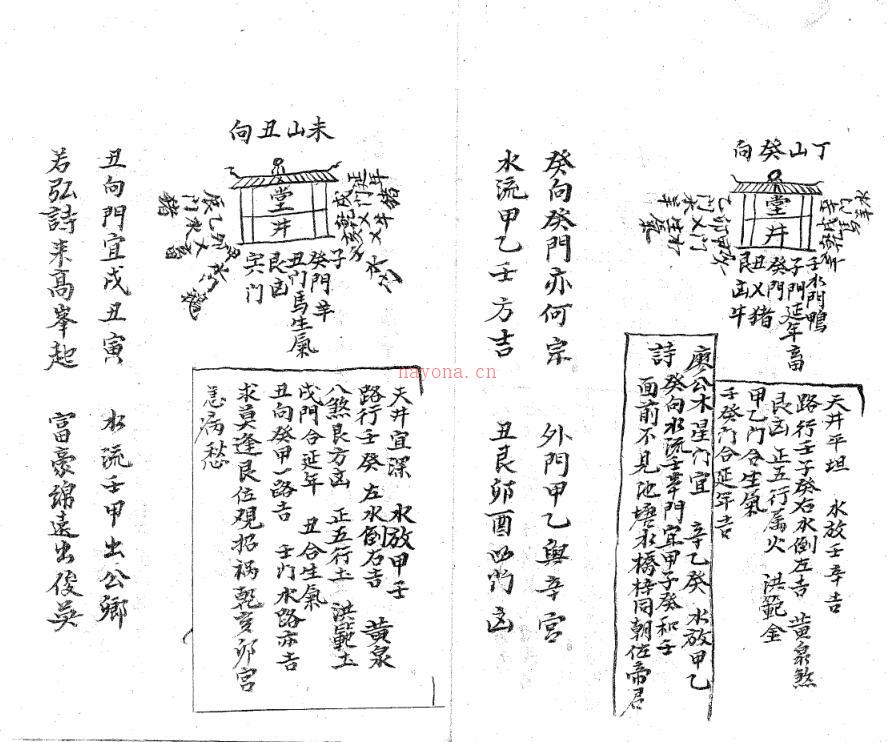 丁山癸向
堂
井
壬水門鴨
子門延年畜
癸門
丑乂猪
艮凶牛
天井平坦 水放壬辛吉
路行壬子癸右水倒左吉 黃泉煞
艮凶 正五行屬火 洪範金
甲乙門合生氣
子癸門合延年吉
廖公木星門宜 辛乙癸 水放甲乙
詩 癸向水流壬辛門 宜甲子癸和壬
面前不見池塘水 橋梓同朝佐帝君
癸向癸門亦何宗 外門甲乙與辛宮
水流甲乙壬方吉 丑艮卯酉四門凶
未山丑向
堂
井
子
癸門辛
丑门馬生氣
艮凶
寅门
天井宜深 水放甲壬
路行壬癸 左水倒右吉 黃泉
八煞艮方凶 正五行土 洪範土
戌門合延年 丑合生氣
丑向癸甲一路吉 壬門水路亦吉
求莫逢艮位覌招禍乾亥卯宮
忌病愁
丑向門宜戌丑寅 水流壬甲出公鄉
若弘詩来高峯起 富豪綿遠出俊英
nayona.cn